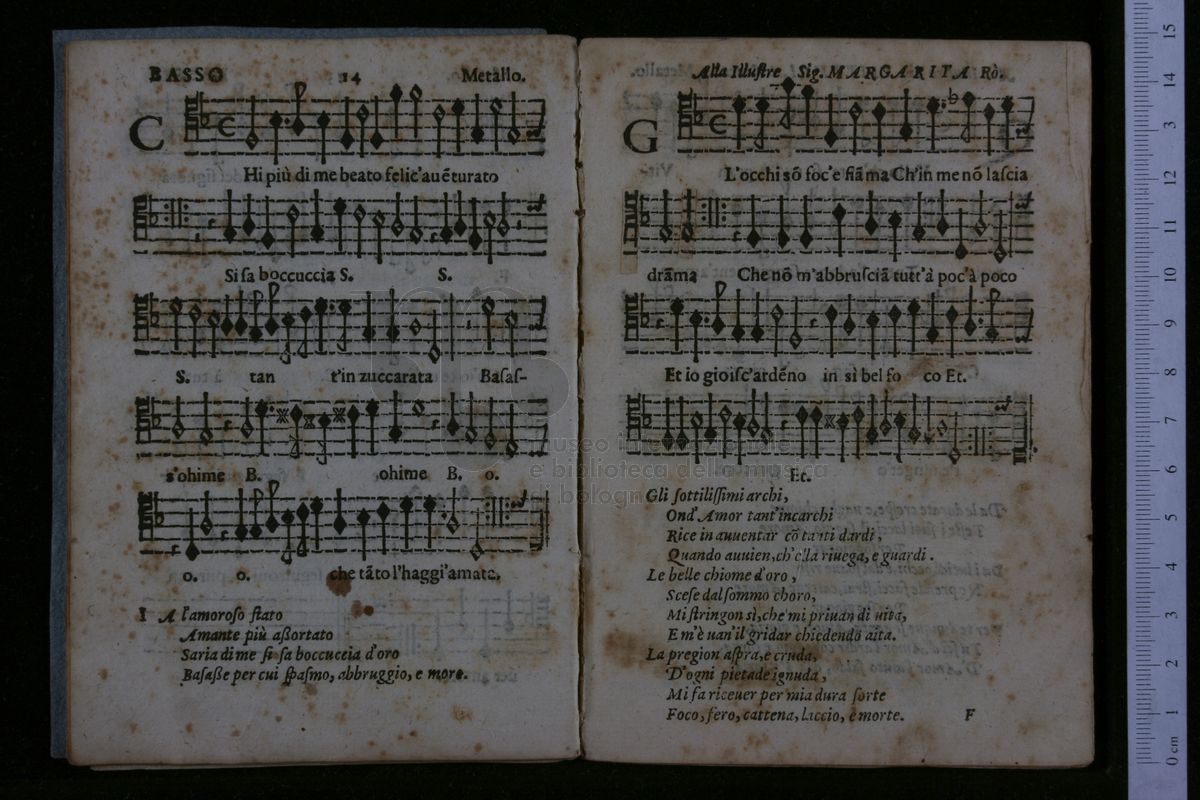 BASSO 14 Metallo.
CHi più di me beato felic'auēturato
Si sa boccuccia S. S.
S. tan t'in zuccarata Basas-
s'ohime B. ohime B. o.
o. o. che tāto l'haggi'amata.
I A l'amoroso stato
Amante più aßortato
Saria di me si sa boccuccia d'oro
Basaße per cui spasmo, abbruggio, e more.
Alla Illustre Sig. MARGARITA Rò.
GL'occhi sō foc'e fiāma Ch'in me nō lascia
drāma Che nō m'abbrusciā tutt'à poc'à poco
Et io gioisc'ardēno in sì bel fo co Et.
Et.
Gli sottilissimi archi,
Ond'Amor tant'incarchi
Rice in auuentar cō tanti dardi,
Quando auuien, ch'ella riuega, e guardi.
Le belle chiome d'oro,
Scese dal sommo choro,
Mi stringon sì, che mi priuan di uita,
E m'è uan'il gridar chiedendo aita.
La pregion aspra, e cruda,
D'ogni pietade ignuda,
Mi fa riceuer per mia dura sorte
Foco, fero, cattena, laccio, e morte. F
museo internazionale
e biblioteca della musica
di bologna
0 cm 1 2 3 4 5 6 7 8 9 10 11 12 13 14 15